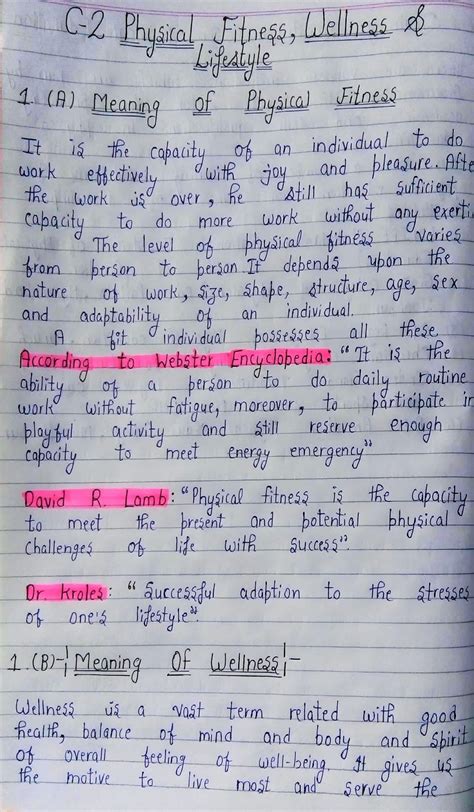 C-2 Physical Fitness, Wellness &
Lifestyle
1. (A) Meaning of Physical Fitness
It is the capacity of an individual to do
work effectively with joy and pleasure. Afte
the work is over, he still has sufficient
capacity to do more work without any exerti
The level of physical fitness varies
from person to person. It depends upon the
nature of work, size, shape, structure, age, sex
and adaptability of an individual.
A fit individual possesses all these
According to Webster Encyclopedia: “It is the
ability of a person to do daily routine
work without fatigue, moreover, to participate in
playful activity and still reserve enough
capacity to meet energy emergency”
David R. Lamb: “Physical fitness is the capacity
to meet the present and potential physical
challenges of life with success”.
Dr. Kroles: “Successful adaption to the stresses
of one's lifestyle”.
1. (B)-| Meaning Of Wellness|-
Wellness is a vast term related with good
health, balance of mind and body and spirit
of overall feeling of well-being. It gives us
the motive to live most and serve the